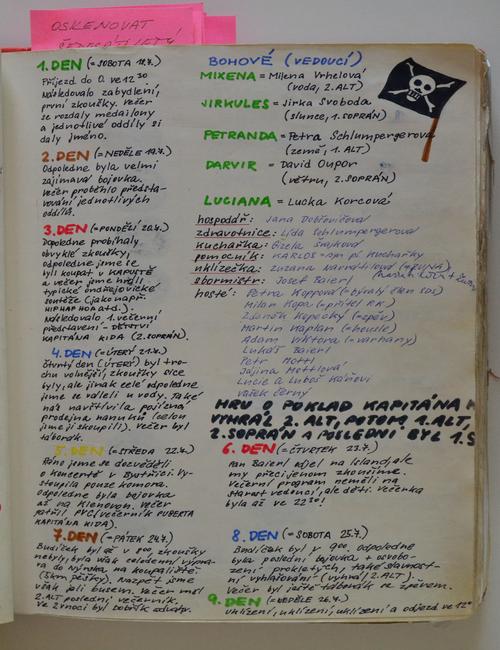 OSKENOVAT
1. DEN (= SOBOTA 18.7.)
Příjezd do O. ve 12 30
Následovalo zabydlení,
první zkoušky. Večer
se rozdaly medailony
a jednotlivé oddíly si
daly jméno.
2. DEN (= NEDĚLE 19.7.)
Odpoledne byla velmi
zajímavá bojovka
večer proběhlo předsta-
vování jednotlivých
oddílů.
3. DEN (= PONDĚLÍ 20.7.)
Dopoledne probíhaly
obvyklé zkoušky,
odpoledne jsme se
byli koupat v KAPUTĚ
a večer jsme hráli
typické
soutěže (jako např.
HIP HOP atd.).
Následovalo 1. večerní
představení - DĚTSTVÍ
KAPITÁNA KIDA (2. SOPRÁN).
4. DEN (= ÚTERÝ 21.7.)
Čtvrtý den (ÚTERÝ) byl tro-
chu volnější, zkoušky sice
byly, ale jinak celé odpoledne
jsme se váleli u vody. Také
nás navštívila pojízdná
prodejna nanuků (celou
jsme ji skoupili). Večer byl
táborák.
5. DEN (= STŘEDA 22.7.)
Ráno jsme se dosvěděli
o koncertě v Bystřici. Vy-
stoupila pouze komora.
Odpoledne byla bojovka
až na Klenovou. Večer
patřil PVC (VEČERNÍK PUBERTA
KAPITÁNA KIDA).
7. DEN (= PÁTEK 24.7.)
Budíček byl až v 800, zkoušky
nebyly, byla však celodenní výpra-
va do Nýrska na koupaliště.
(5km pěšky). Nazpět jsme
však jeli busem. Večer měl
2. ALT poslední večerník.
BOHOVÉ (VEDOUCÍ)
MIXENA = Milena Vrhelová
(voda, 2. ALT)
JIRKULES = Jirka Svoboda
(slunce, 1. SOPRÁN)
PETRANDA = Petra Schlumpergerová
(země, 1. ALT)
DARVIR = David Oupor
(větru, 2. SOPRÁN)
LUCIANA = Lucka Korcová
hospodář: Jana Dobřevičová
zdravotnice: Lída Schlumpergerová
kuchařka: Gizela
pomocník: KARLOS = syn pí kuchařky
uklízečka: Zuzana
sbormistr: Josef Baierl
hosté: Petra Koppová (bývalý člen SDS)
Milan Kopa (= přítel P.K.)
Zdeněk Kopecký (= zpěv)
Martin Kaplan (= housle)
Adam Viktora (= varhany)
Lukáš Baierl
Petr Mottl
Jájina Mottlová
Lucie a Luboš Káňovi
Vašek Černý
HRU O POKLAD KAPITÁNA K
VYHRÁL 2. ALT, POTOM 1. ALT,
2. SOPRÁN A POSLEDNÍ BYL 1. S
6. DEN (= ČTVRTEK 23.7.)
Pan Baierl odjel na Island, ale
my přeci jenom zkoušíme.
Večerní program neměli na
starost vedoucí, ale děti. Večerka
byla až ve 22 30!
8. DEN (= SOBOTA 25.7.)
Budíček byl v 900, odpoledne
byla poslední bojovka + osvobo-
zení prokletých, také slavnost-
ní vyhlašování (vyhrál 2. ALT).
Večer byl ještě táborák se zpěvem.
9. DEN (= NEDĚLE 26.7.)
uklízení, uklízení, uklízení a odjezd ve 12